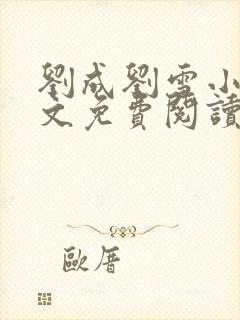 劉成劉雪小
文免費閱讀
歐厝